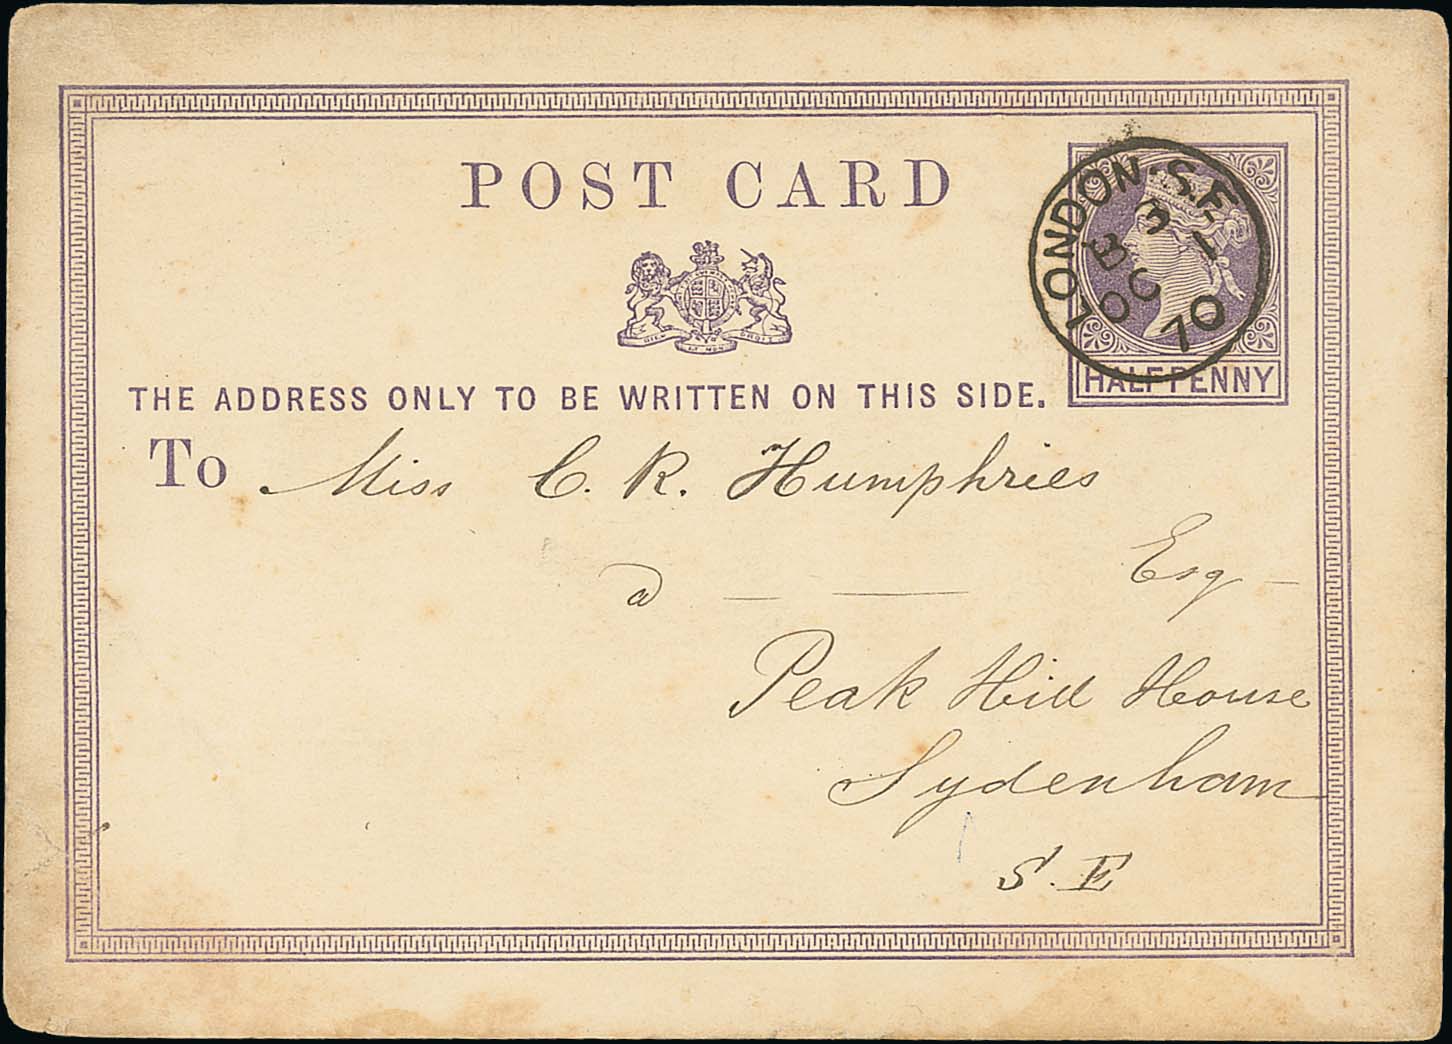 POST CARD
LONDON.S.E.
3
B 1
OC
70
HALFPENNY
DIEU ET MON DROIT
THE ADDRESS ONLY TO BE WRITTEN ON THIS SIDE.
To Miss C. R. Humphries
Esq
Peak Hill House
Sydenham
S.E